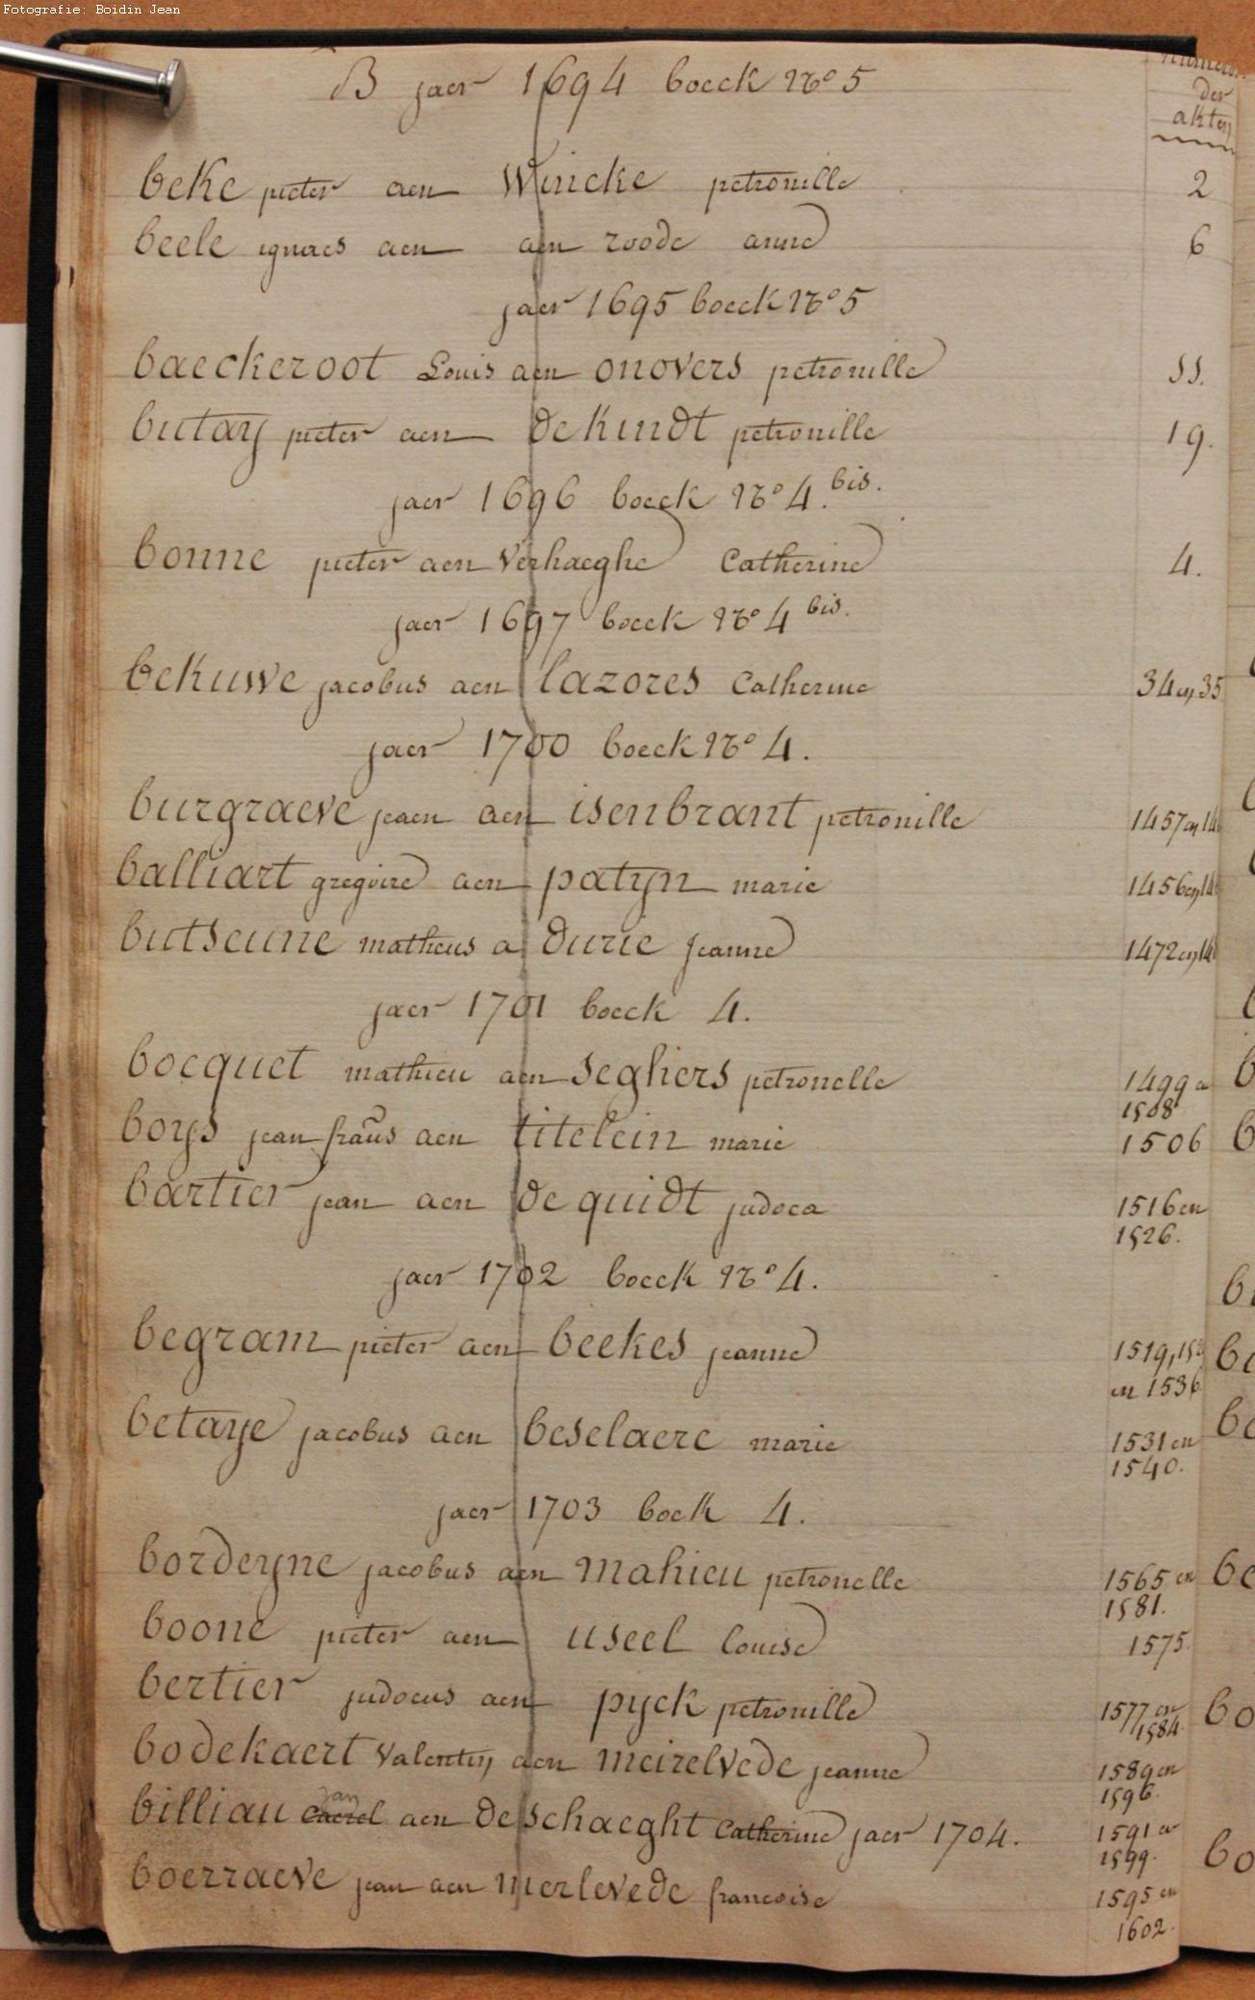 Fotografie: Boidin Jean
B jaer 1694 boeck No 5
der
akten
beke pieter aen Wincke petronille 2
beele ignaes aen aen roode anne 6
jaer 1695 boeck No 5
baeckeroot Louis aen onovers petronille 11.
butay pieter aen dekindt petronille 19.
jaer 1696 boeck No 4. bis.
bonne pieter aen Verhaeghe Catherine 4.
jaer 1697 boeck No 4 bis.
bekuwe jacobus aen lazores Catherine 34 en 35
jaer 1700 boeck No 4.
burgraeve jeaen aen isenbrant petronille 1457 en
balliart gregoire aen patyn marie 1456 en
butseune matheus a durie Jeanne 1472 en
jaer 1701 boeck 4.
bocquet mathieu aen seghers petronelle 1499
1508
boys jean frans aen titelein marie 1506
bartier jean aen de quidt judoca 1516 en
1526.
jaer 1702 boeck No 4.
begram pieter aen beekes jeanne 1519,
en 1536
betaye jacobus aen beselaere marie 1531 en
1540.
jaer 1703 boek 4.
bordeyne jacobus aen mahieu petronelle 1565 en
1581.
boone pieter aen useel louise 1575.
bertier judocus aen pyck petronille 1577 en
1584.
bodekaert Valentin aen meirelvede jeanne 1589 en
1596.
jan
billiau Caerel aen de schaeght Catherine jaer 1704. 1591 en
1599.
boerraeve jean aen merlevede francoise 1595 en
1602.